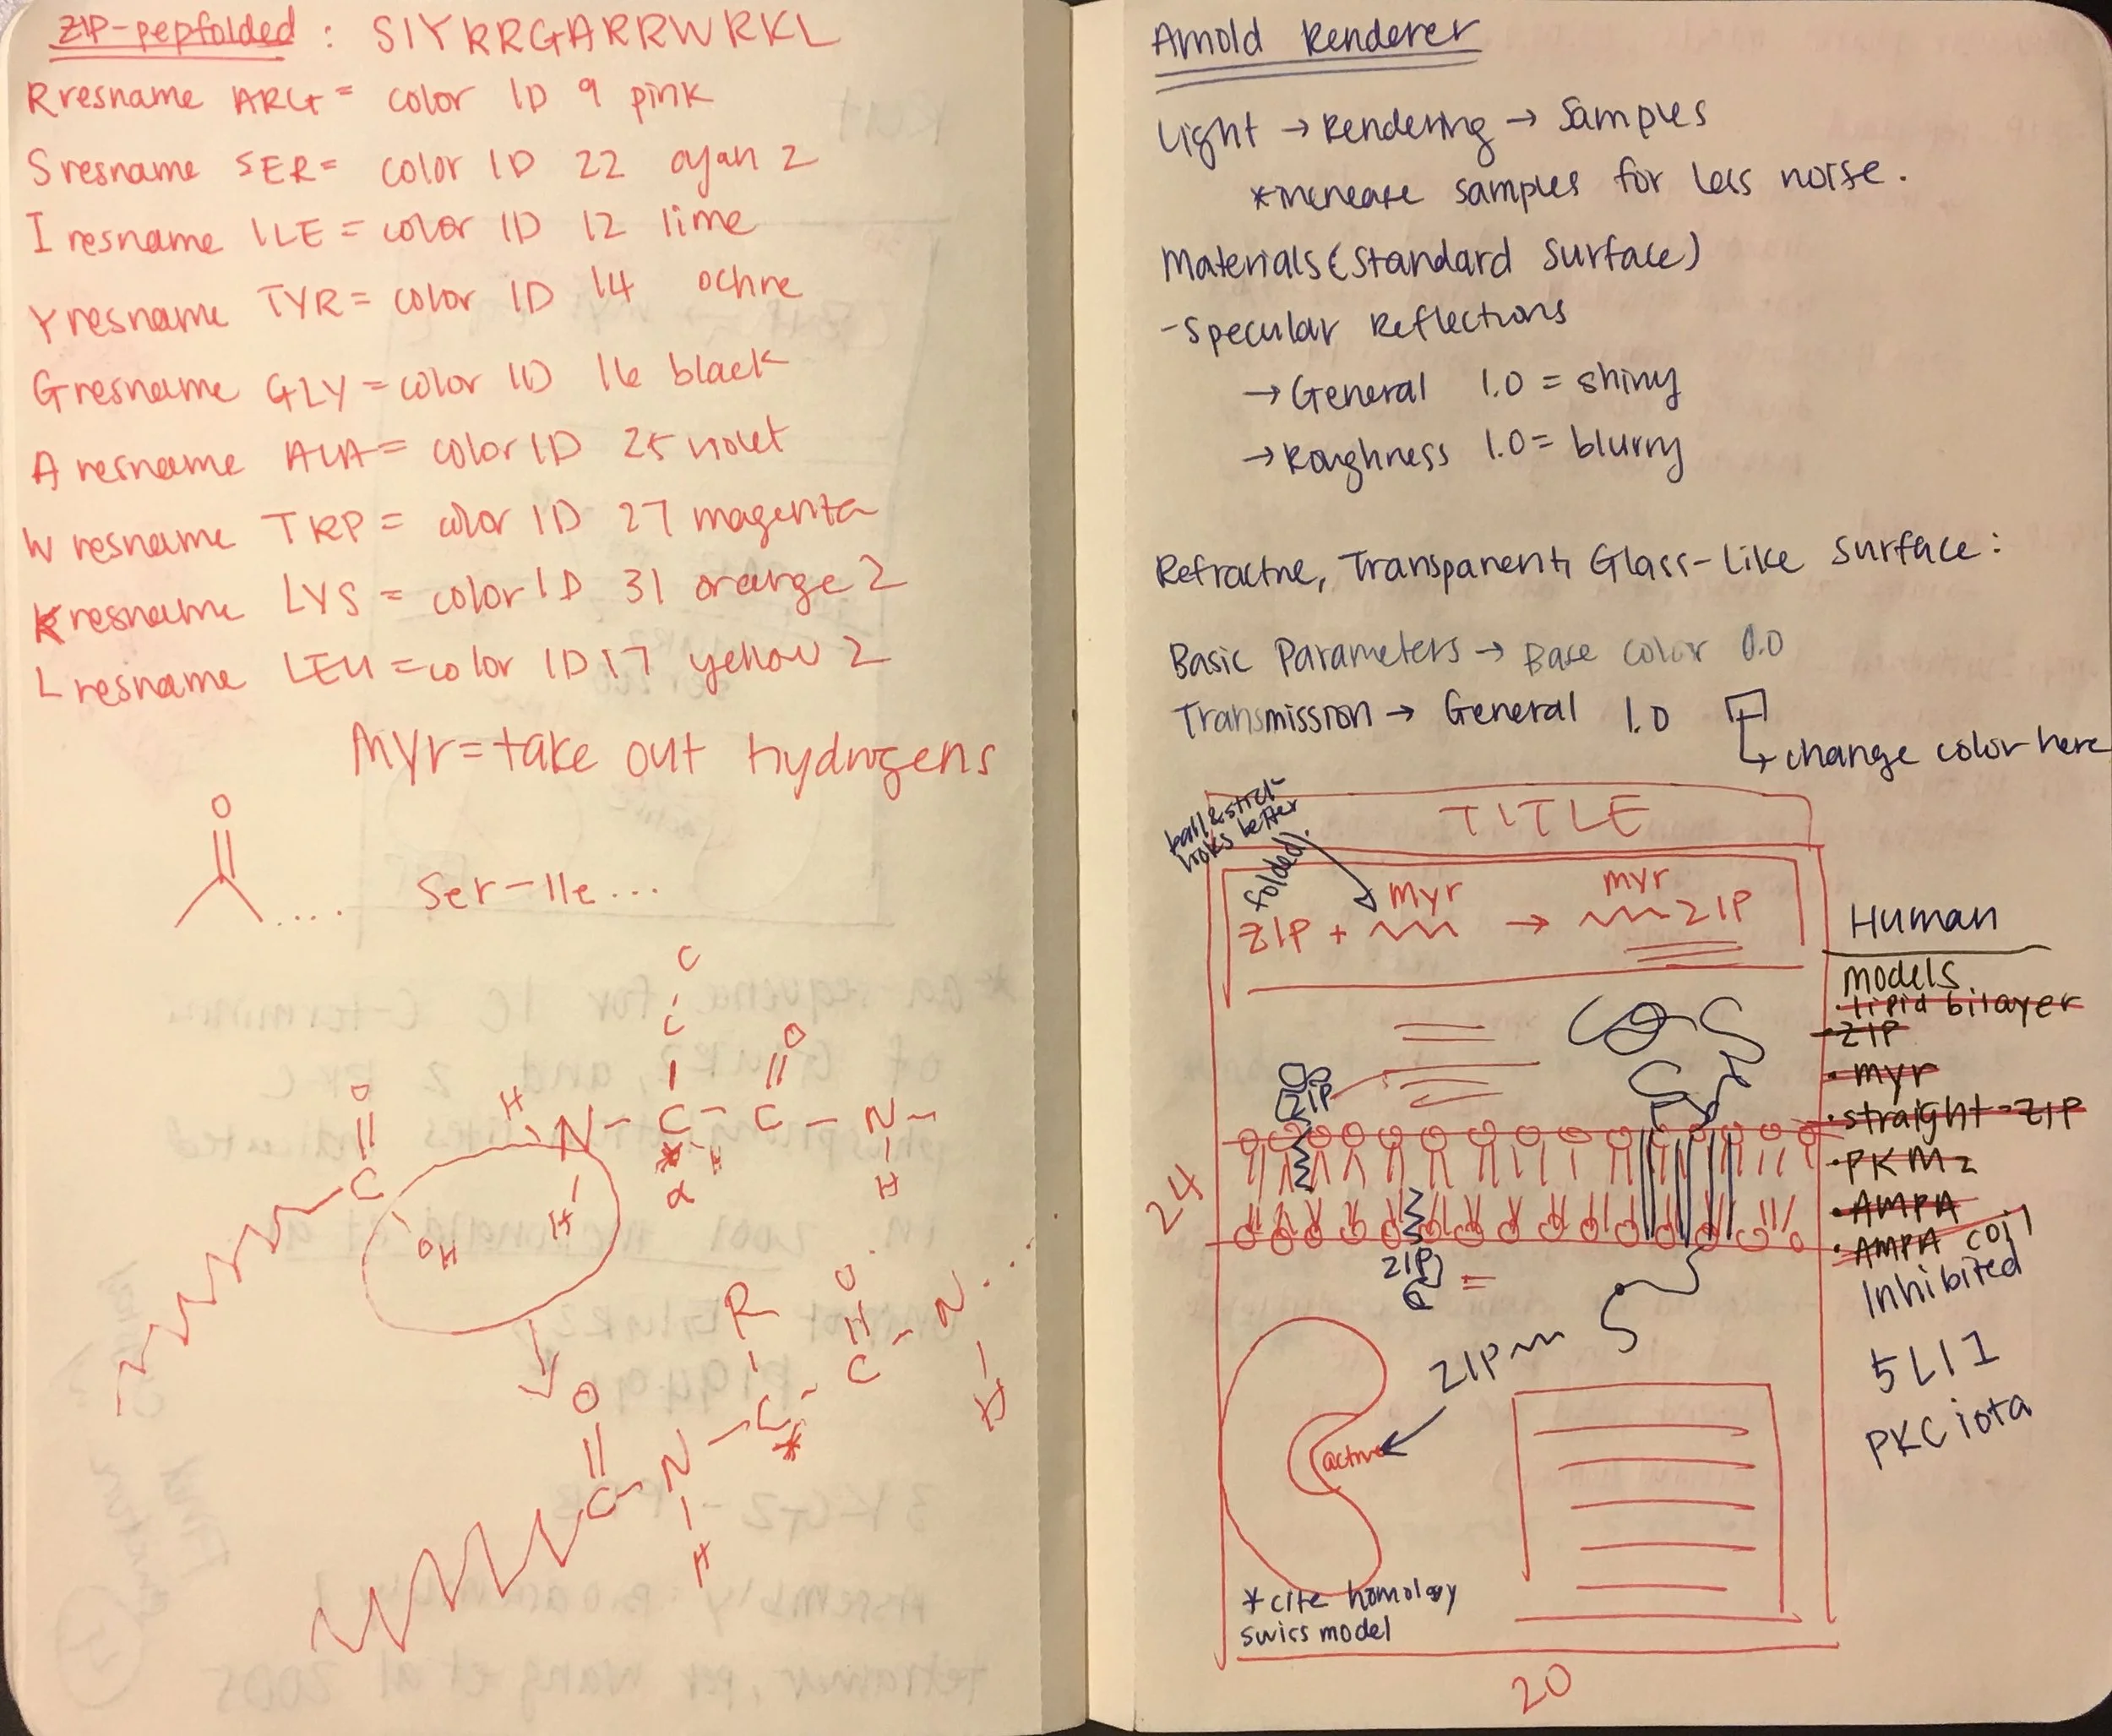 ZIP-pepfolded : SIYRRGARRWRKL
R resname ARG = color ID 9 pink
S resname SER = color ID 22 cyan 2
I resname ILE = color ID 12 lime
Y resname TYR = color ID 14 ochre
G resname GLY = color ID 16 black
A resname ALA = color ID 25 violet
W resname TRP = color ID 27 magenta
K resname LYS = color ID 31 orange 2
L resname LEU = color ID 17 yellow 2
Myr = take out hydrogens
O
.... Ser-Ile ...
C
C
O
O
H
N - C - C - N -
C
* H
α
H
OH
H
R
O
C - N ...
H
O
C
*
C - N
H
Arnold Renderer
Light → Rendering → Samples
*increase samples for less noise.
Materials (Standard Surface)
- Specular Reflections
→ General 1.0 = shiny
→ Roughness 1.0 = blurry
Refractive, Transparent, Glass-Like Surface:
Basic Parameters → Base color 0.0
Transmission → General 1.0
↳ change color here
TITLE
ball & stick
looks better
folded
myr
myr
ZIP + → ZIP
Human
Models
• lipid bilayer
- ZIP
• myr
• straight-ZIP
• PKMz
• AMPA
• AMPA coil
Inhibited
5LI1
PKC iota
ZIP
24
ZIP
ZIP
active
* cite homology
swiss model
20